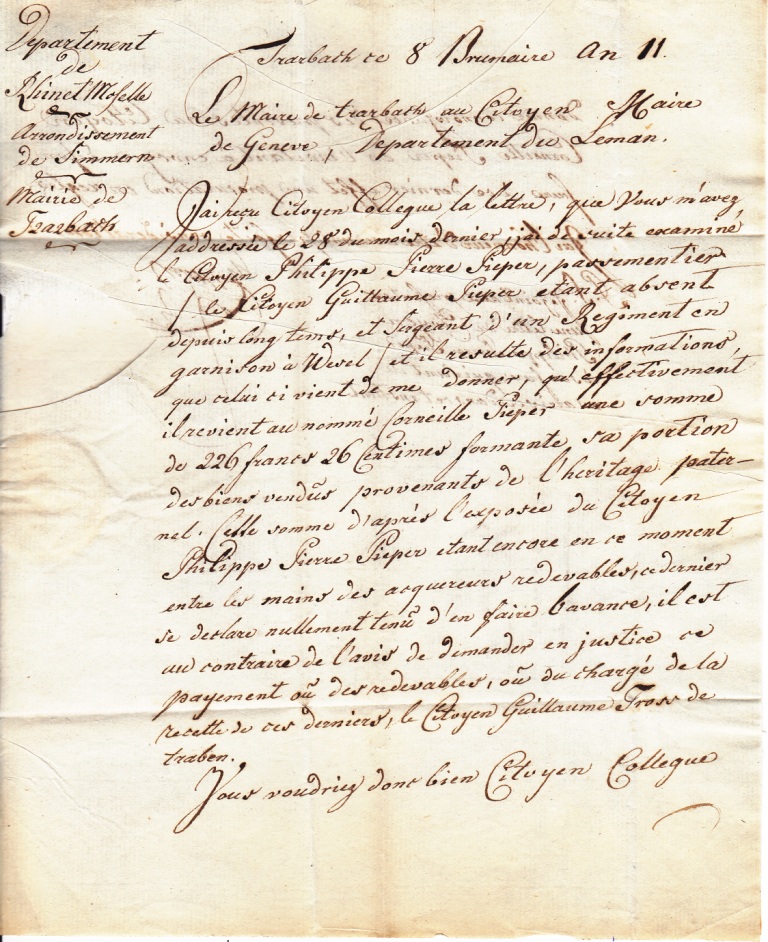 Departement
de
Rhin et Moselle
Arrondissement
de Simmern
Mairie de
Trarbach
Trarbach ce 8 Brumaire an 11.
Le Maire de trarbach au Citoyen Maire
de Geneve, Departement du Leman.
J'ai reçu Citoyen Collegue la lettre, que Vous m'avez
addressée le 28 du mois dernier, j'ai de suite examiné
le Citoyen Philippe Pierre Pieper, passementier
/ le Citoyen Guillaume Pieper etant absent
depuis long tems, et Sergeant d'un Regiment en
garnison à Wesel / et il resulte des informations,
que celui ci vient de me donner, qu'effectivement
il revient au nommé Corneille Pieper une somme
de 226 francs 26 Centimes formante sa portion
des biens vendus provenants de l'heritage pater-
nel. Cette somme d'après l'exposée du Citoyen
Philippe Pierre Pieper etant encore en ce moment
entre les mains des acquereurs redevables, ce dernier
se declare nullement tenu d'en faire l'avance, il est
au contraire de l'avis de demander en justice ce
payement où des redevables, où du chargé de la
recette de ces derniers, le Citoyen Guillaume Tross de
traben.
Vous voudriez donc bien Citoyen Collegue